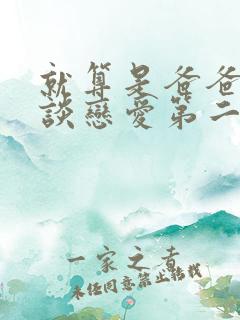 就算是爸爸
談戀愛第二
一家之者
未经同意禁止转载